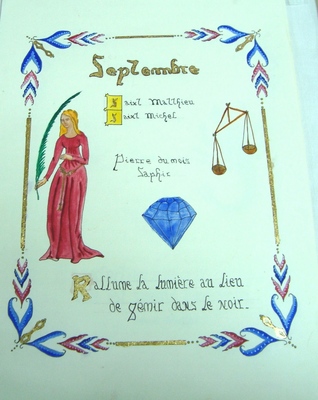 Septembre
Saint Matthieu
Saint Michel
Pierre du mois
Saphir
Rallume la lumière au lieu
de gémir dans le noir.